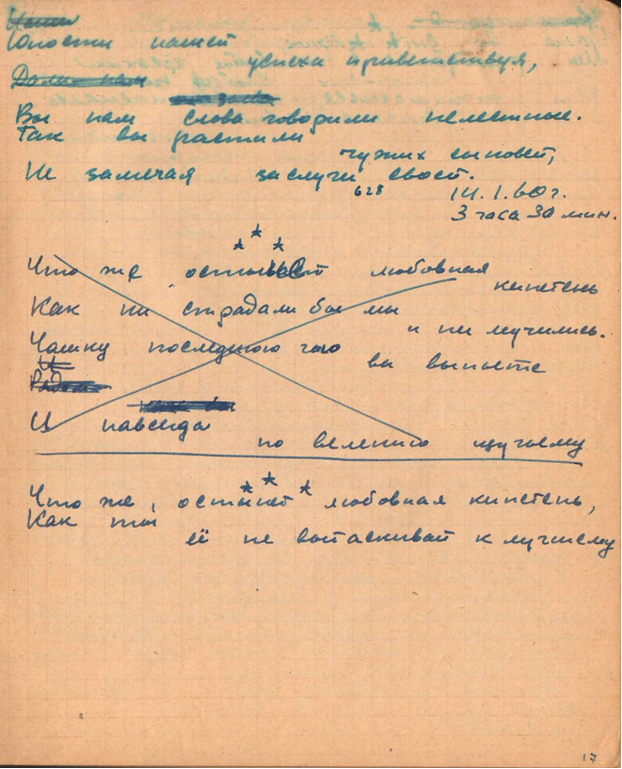 Юности нашей
успеха приветствуя,
Вы нам слова говорили нелестные.
Так вы растили
чужих сыновей,
Не замечая заслуги своей.
628
14.1.60 г.
3 часа 30 мин.
* * *
Что же, остынет любовная
кипень
Как ни страдали бы мы
и ни мучились.
Чашку последнюю чаю
вы выпьете
И навсегда
по велению щучьему
* * *
Что же, остынет любовная кипень,
Как ты
её не вытаскивай к лучшему
17